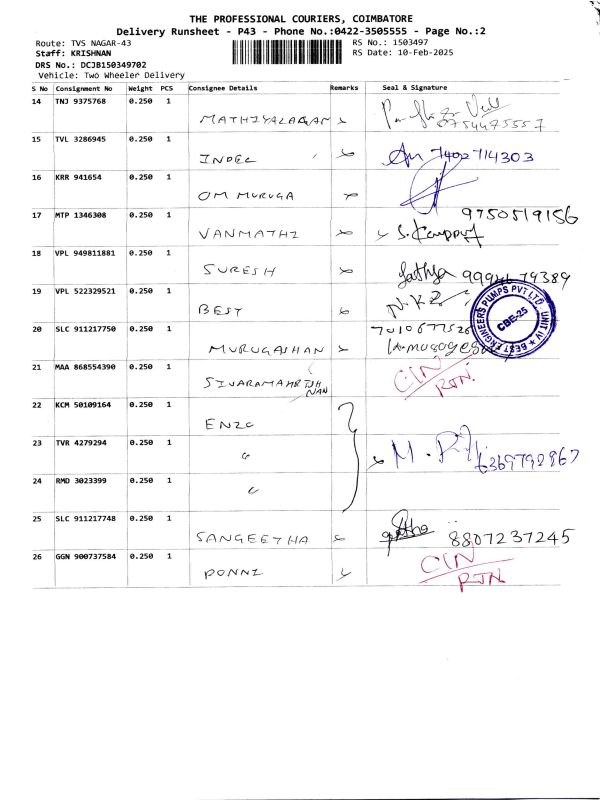 THE PROFESSIONAL COURIERS, COIMBATORE
Delivery Runsheet - P43 - Phone No.:0422-3505555 - Page No.:2
Route: TVS NAGAR-43 RS No.: 1503497
Staff: KRISHNAN RS Date: 10-Feb-2025
DRS No.: DCJB150349702
Vehicle: Two Wheeler Delivery
S No Consignment No Weight PCS Consignee Details Remarks Seal & Signature
14 TNJ 9375768 0.250 1 MATHIYALAGAN 9754475557
15 TVL 3286945 0.250 1 INDEL 7402714303
16 KRR 941654 0.250 1 OM MURUGA
17 MTP 1346308 0.250 1 VANMATHI 9750519156
18 VPL 949811881 0.250 1 SURESH Sathya
19 VPL 522329521 0.250 1 BEST N.K
BEST ENGINEERS PUMPS PVT LTD. UNIT IV
CBE-25
20 SLC 911217750 0.250 1 MURUGASHAN 7010677526
21 MAA 868554390 0.250 1 CIN
RTN.
22 KCM 50109164 0.250 1 ENZO
23 TVR 4279294 0.250 1 " M. 6369792867
24 RMD 3023399 0.250 1 "
25 SLC 911217748 0.250 1 SANGEETHA 8807237245
26 GGN 900737584 0.250 1 PONNI CIN
RTN